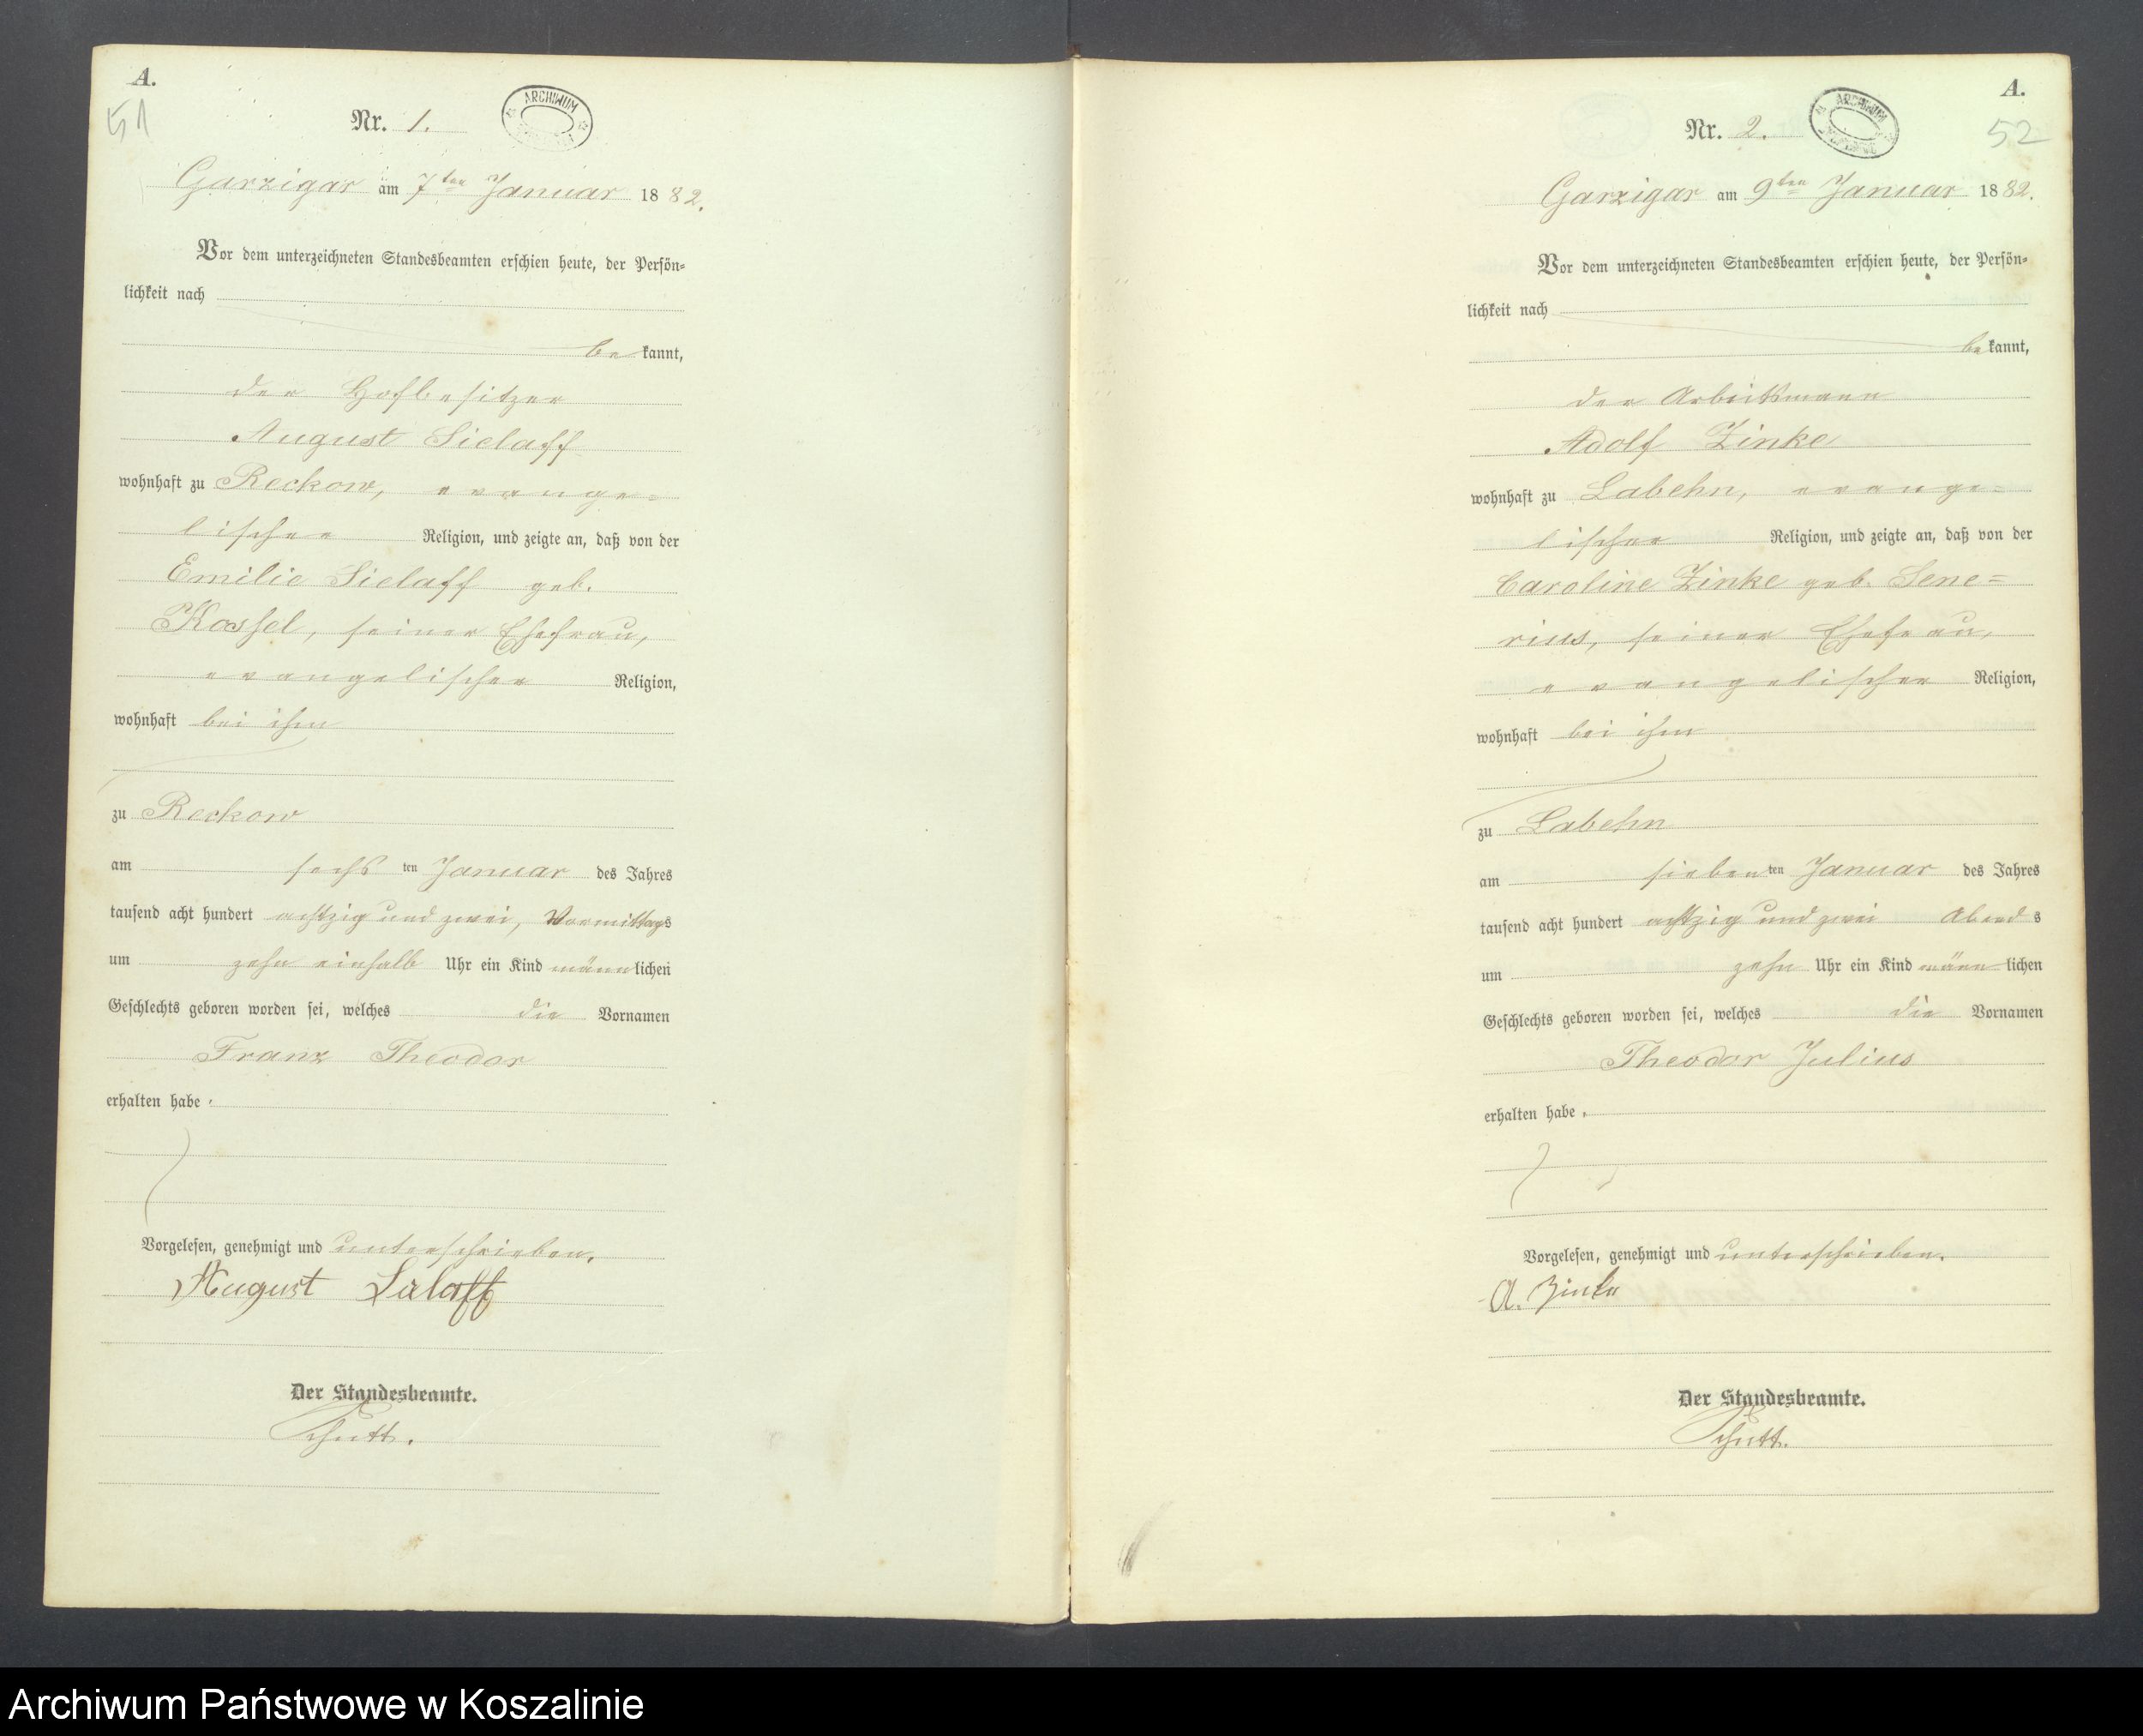 A.
51
Nr. 1.
ARCHIWUM
Garzigar am 7ten Januar 1882.
Vor dem unterzeichneten Standesbeamten erschien heute, der Persön-
lichkeit nach
bekannt,
der Hofbesitzer
August Sielaff
wohnhaft zu Reckow, evange-
lischer Religion, und zeigte an, daß von der
Emilie Sielaff geb.
Kossel, seiner Ehefrau,
evangelischer Religion,
wohnhaft bei ihm
zu Reckow
am sechsten Januar des Jahres
tausend acht hundert achtzig und zwei, Vormittags
um zehn einhalb Uhr ein Kind männlichen
Geschlechts geboren worden sei, welches die Vornamen
Franz Theodor
erhalten habe.
Vorgelesen, genehmigt und unterschrieben.
August Sielaff
Der Standesbeamte.
Schutt.
A.
52
Nr. 2.
ARCHIWUM
Garzigar am 9ten Januar 1882.
Vor dem unterzeichneten Standesbeamten erschien heute, der Persön-
lichkeit nach
bekannt,
der Arbeitsmann
Adolf Zinke
wohnhaft zu Labehn, evange-
lischer Religion, und zeigte an, daß von der
Caroline Zinke geb. Sene-
rius, seiner Ehefrau,
evangelischer Religion,
wohnhaft bei ihm
zu Labehn
am siebenten Januar des Jahres
tausend acht hundert achtzig und zwei Abends
um zehn Uhr ein Kind männlichen
Geschlechts geboren worden sei, welches die Vornamen
Theodor Julius
erhalten habe.
Vorgelesen, genehmigt und unterschrieben.
A. Zinke
Der Standesbeamte.
Schutt.
Archiwum Państwowe w Koszalinie